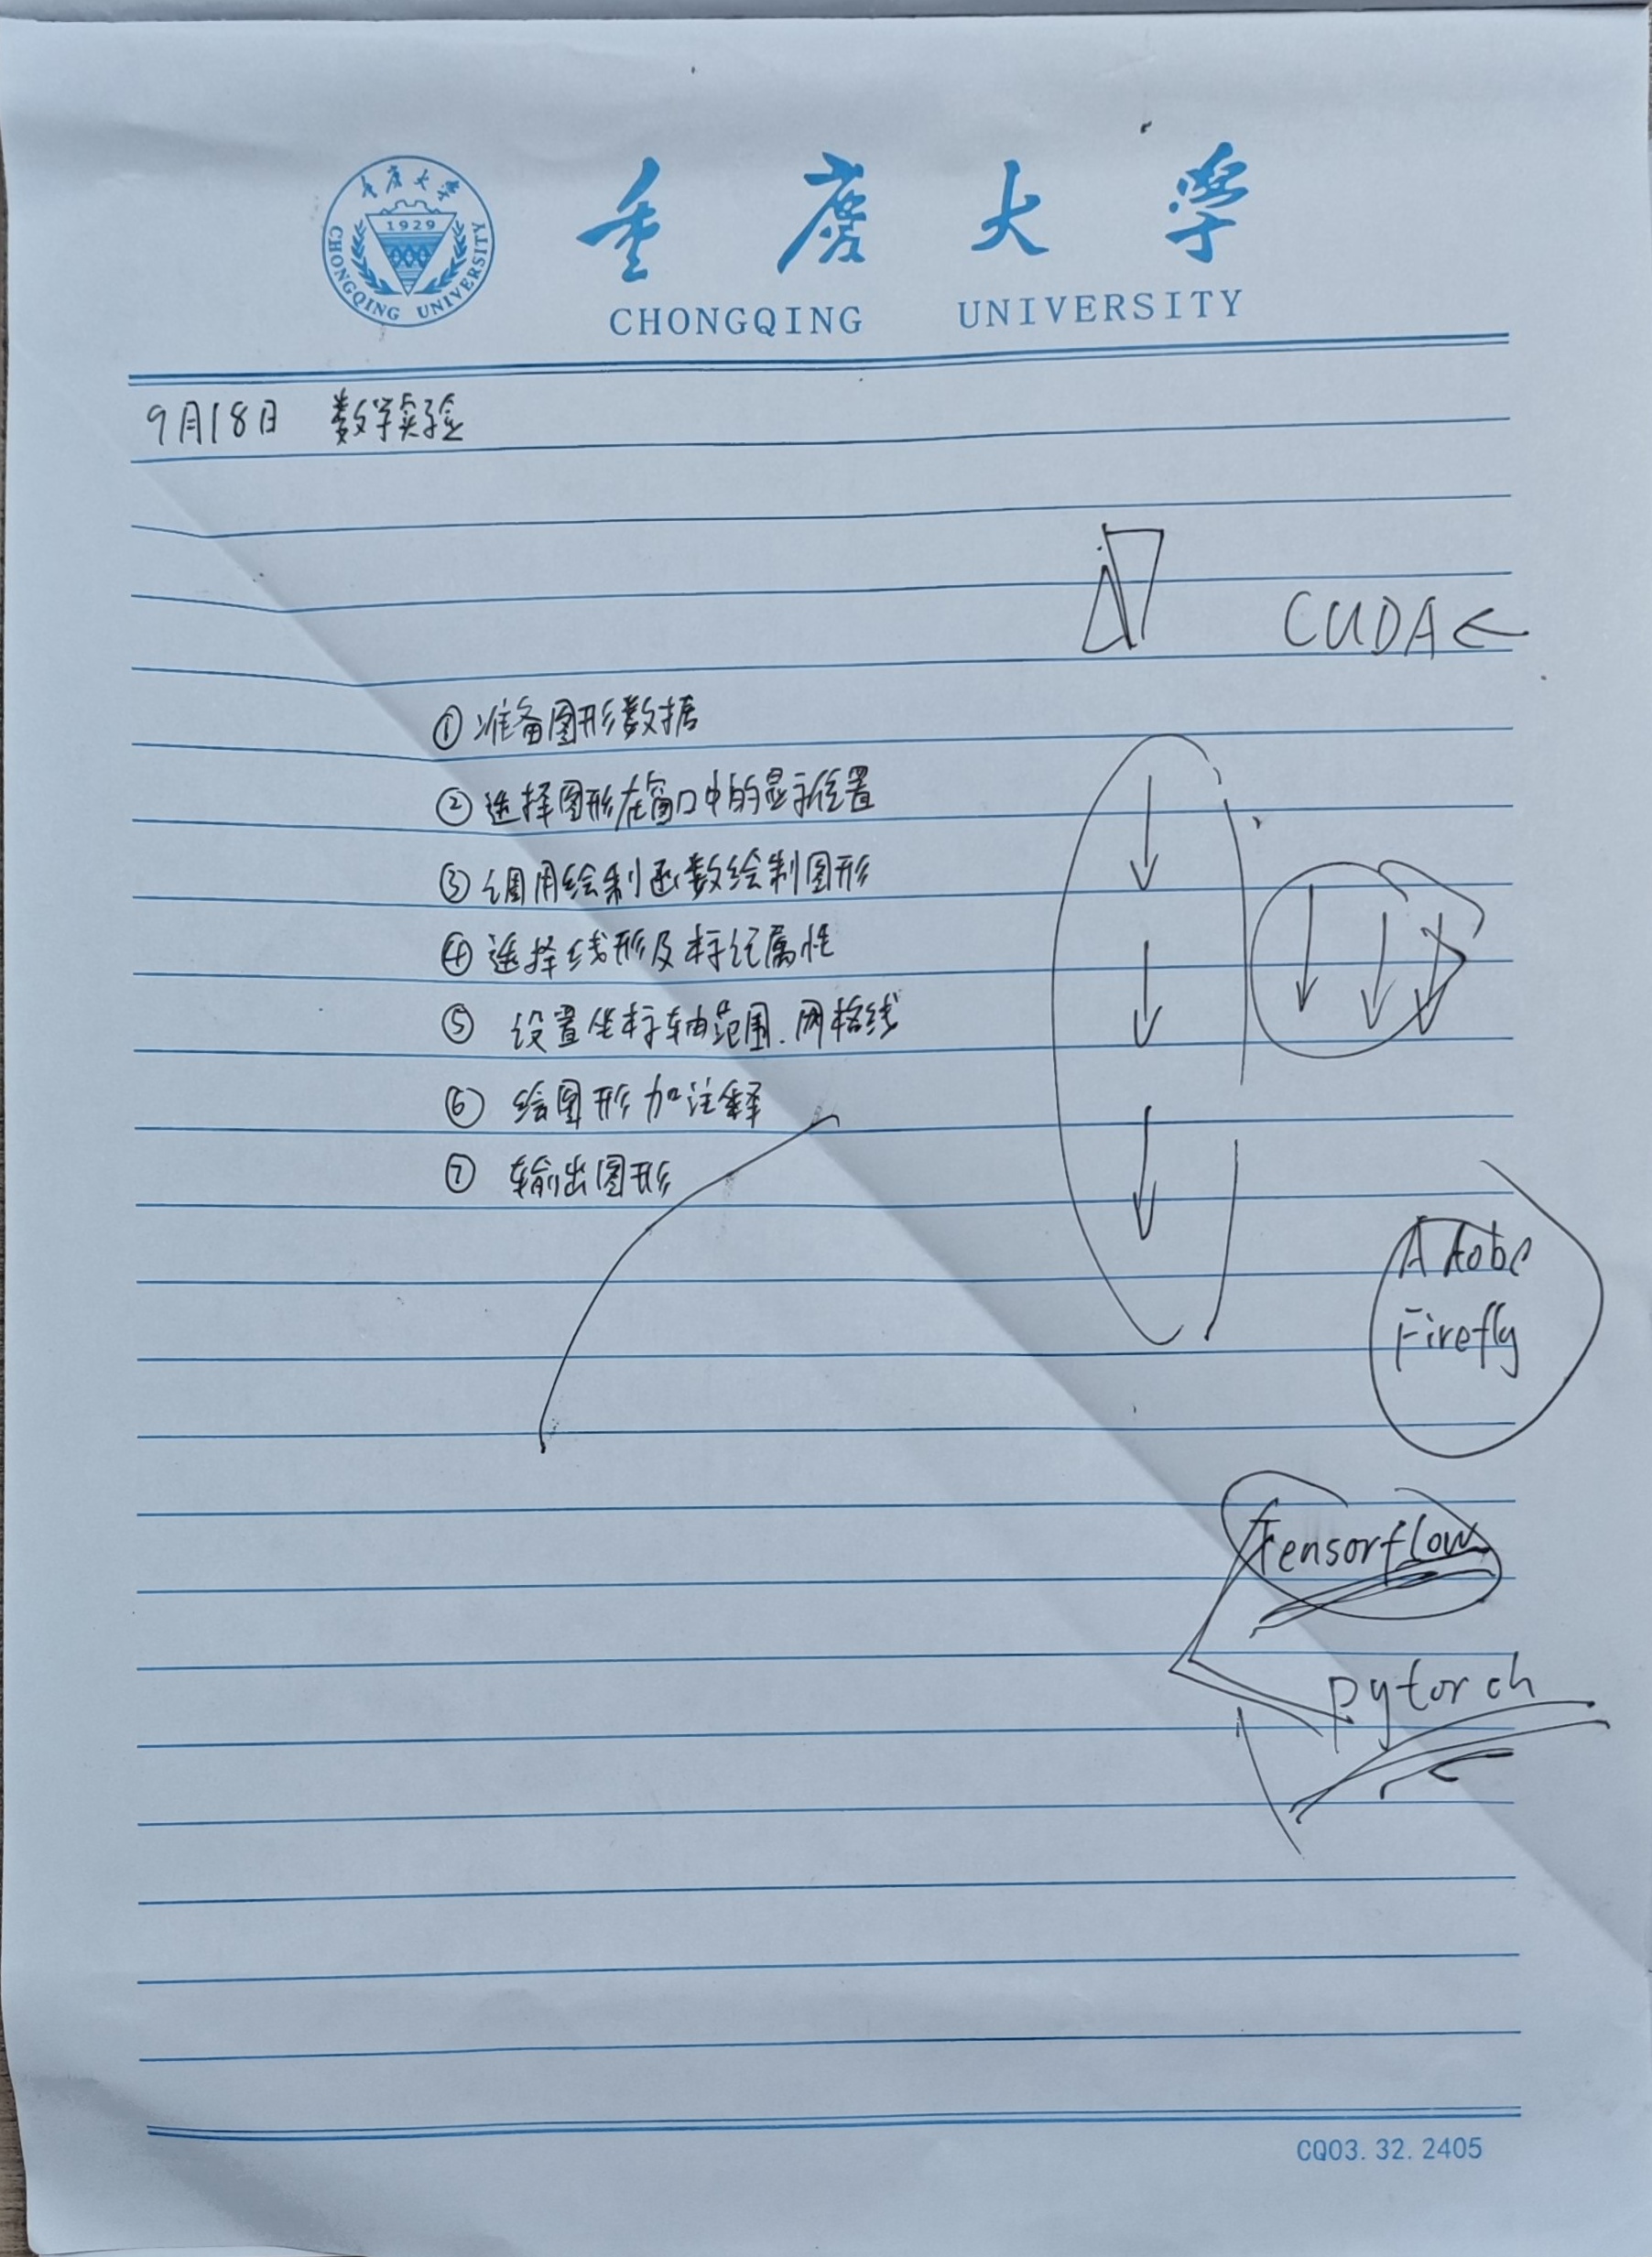 重庆大学
1929
CHONGQING UNIVERSITY
重庆大学
CHONGQING UNIVERSITY
9月18日 数学实验
CUDA
① 准备图形数据
② 选择图形在窗口中的显示位置
③ 调用绘制函数绘制图形
④ 选择线形及标记属性
⑤ 设置坐标轴范围.网格线
⑥ 绘图形加注释
⑦ 输出图形
Adobe
Firefly
Tensorflow
pytorch
CQ03.32.2405